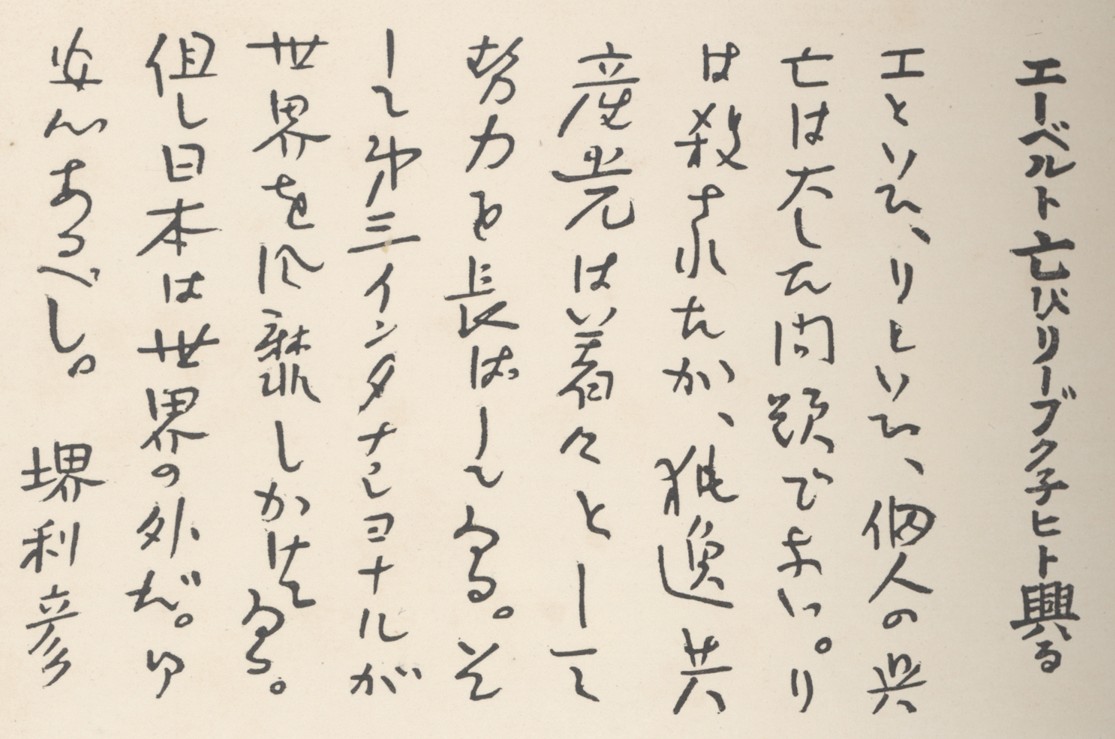 エーベルト亡びリーブクネヒト興る
エといひ、リといひ、個人の興
亡は大した問題でない。リ
は殺されたが、独逸共
産党は着々として
努力を長はしてゐる。そ
して第三インタナショナルが
世界を風靡しかけてゐる。
但し日本は世界の外だ。ゆ
安心あるべし。 堺利彦